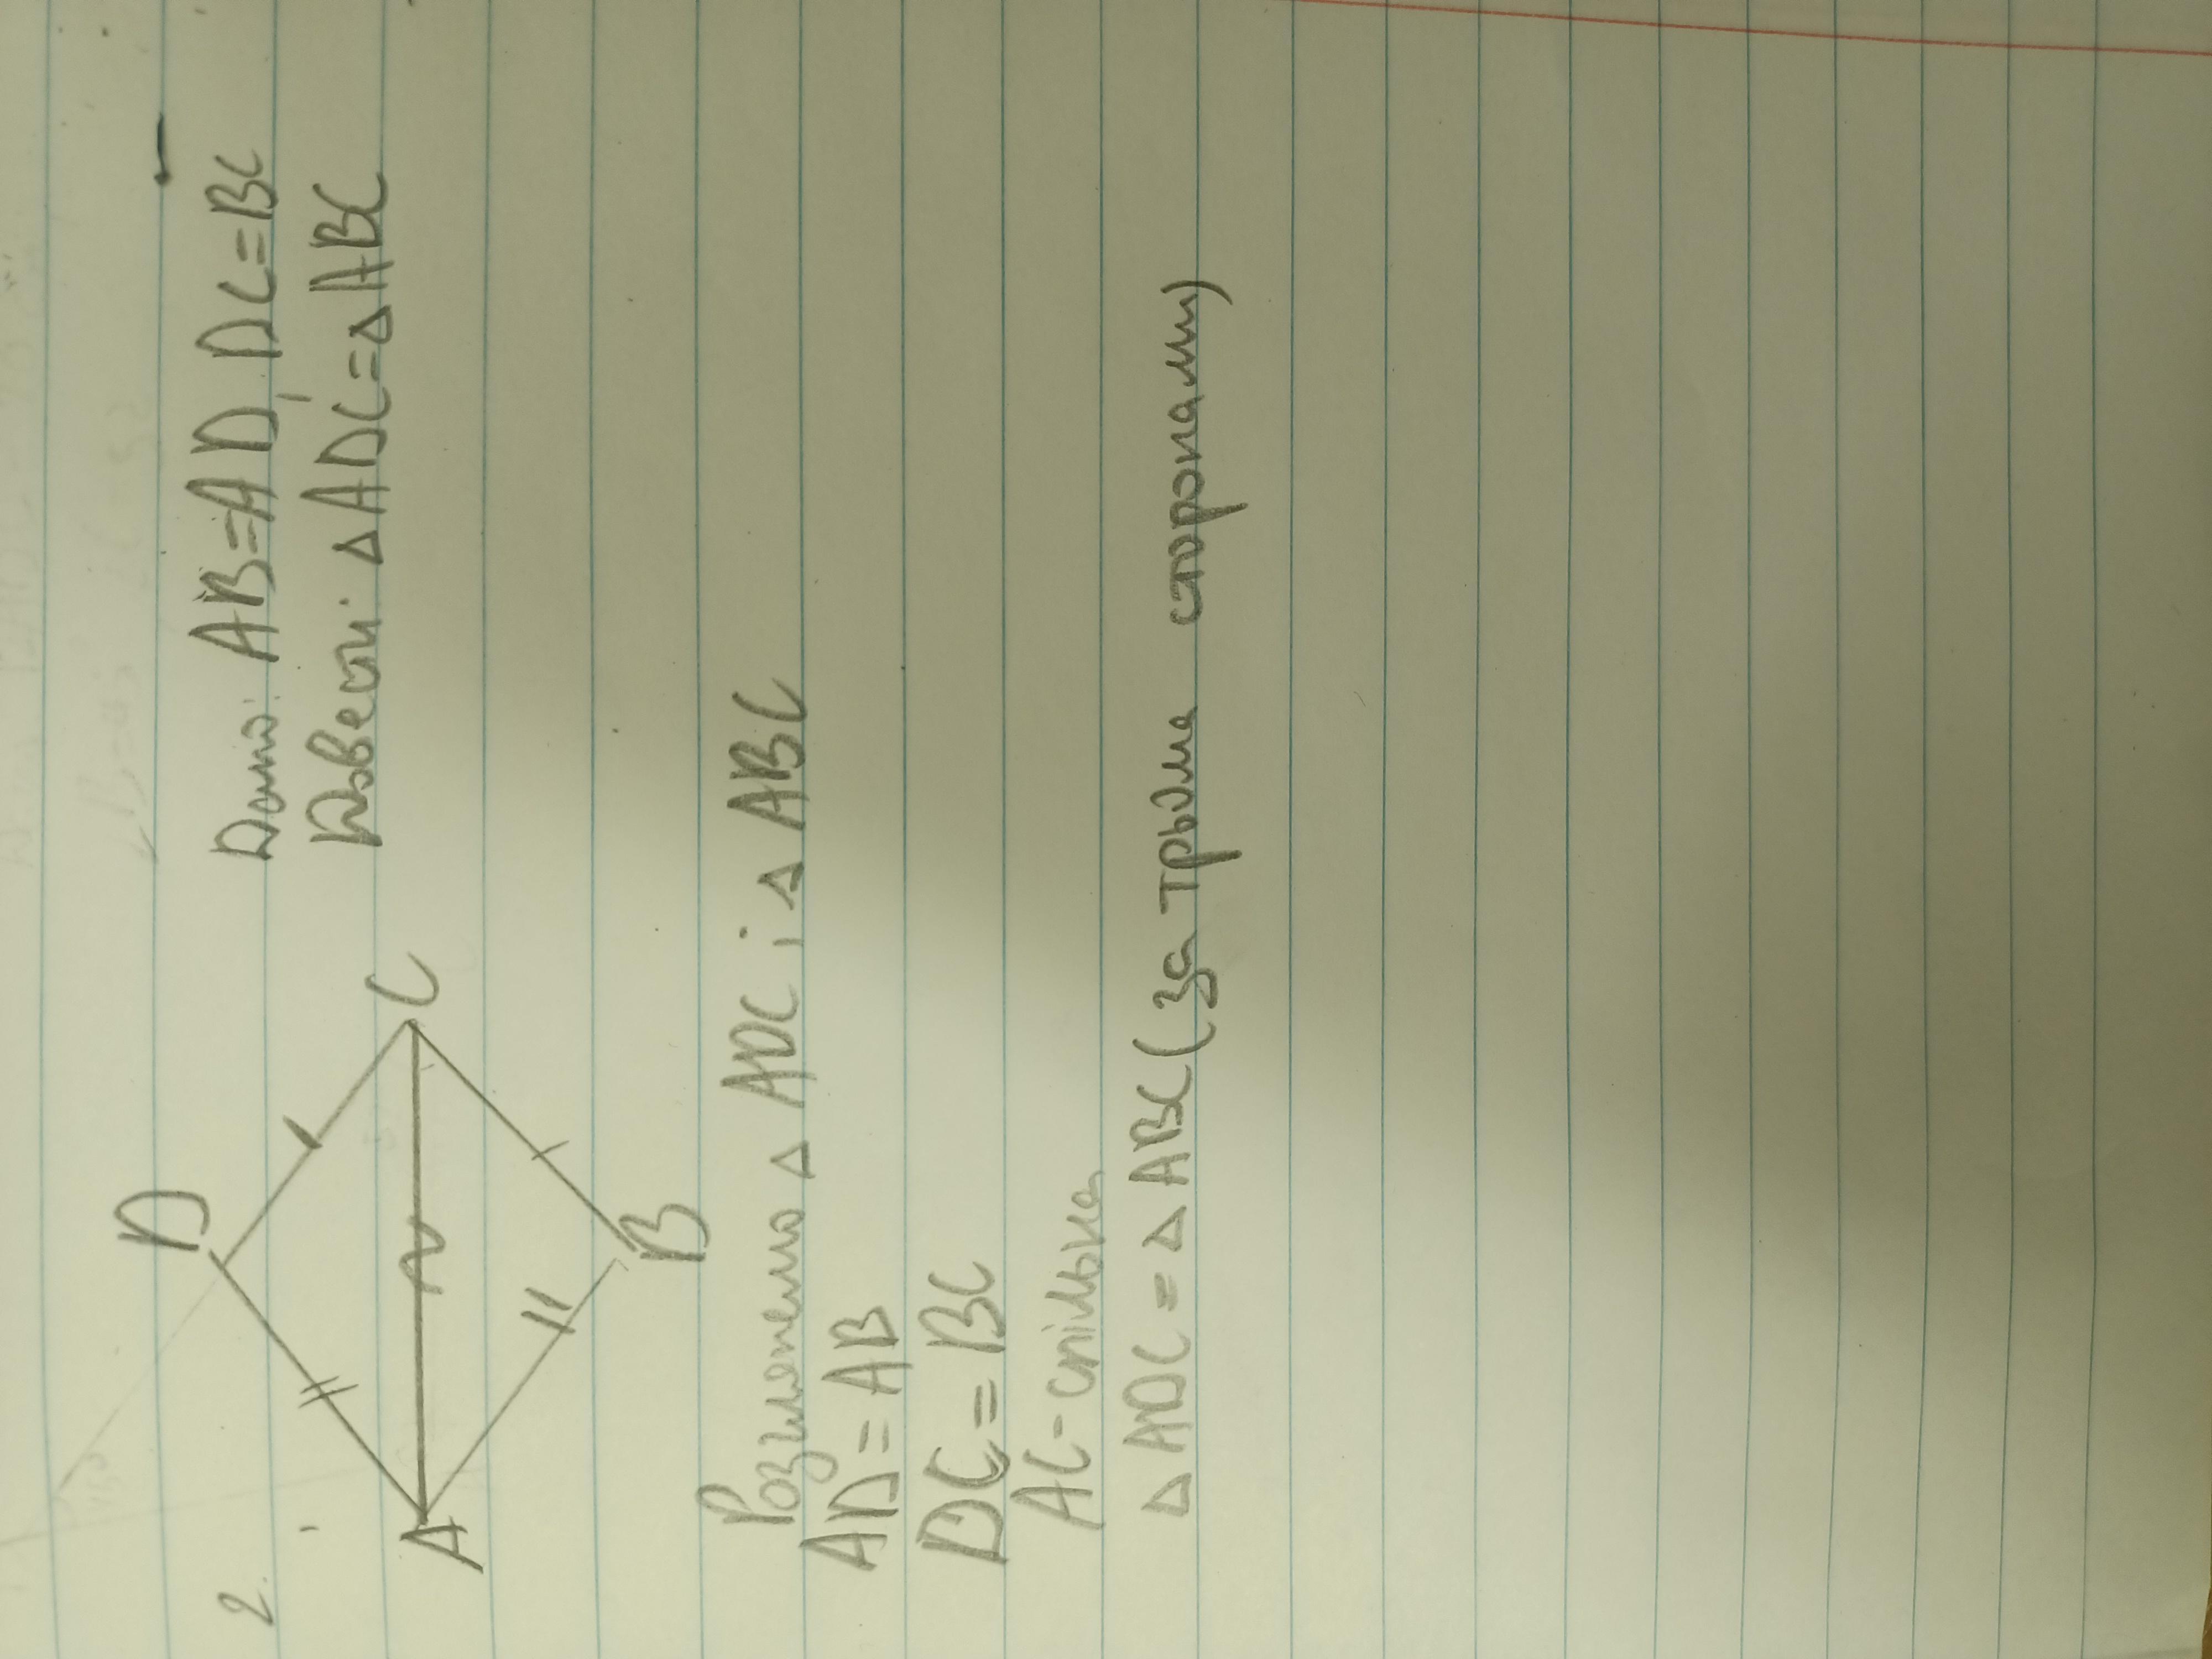 2.
D
A
C
B
Дано: AB=AD, DC=BC
Довести: △ADC=△ABC
Розглянемо △ADC і △ABC
AD=AB
DC=BC
AC-спільна
△ADC=△ABC(за трьома сторонами)